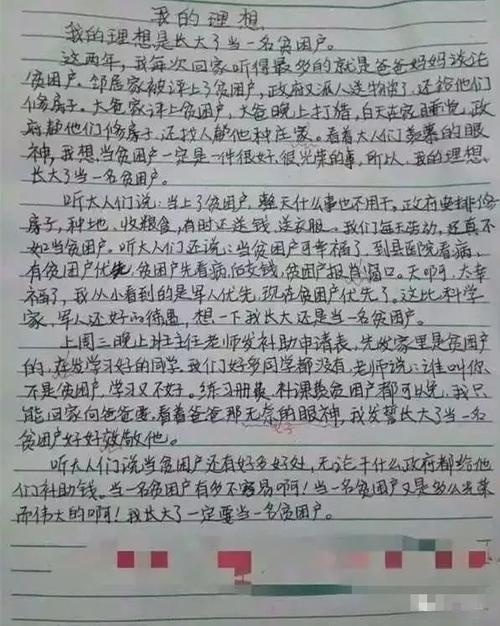 我的理想
我的理想是长大了当一名贫困户。
这两年,我每次回家听得最多的就是爸爸妈妈谈论
贫困户,邻居家被评上了贫困户,政府又派人送物资了,还给他们
修房子。大爸家评上贫困户,大爸晚上打猎,白天在家睡觉,政
府帮他们修房子,还找人帮他种庄家。看着大人们羡慕的眼
神,我想,当贫困户一定是一件很好、很光荣的事,所以,我的理想
长大了当一名贫困户。
听大人们说:当上了贫困户,整天什么事也不用干,政府安排修
房子,种地、收粮食,有时还送钱、送衣服。我们每天劳动,还真不
如当贫困户。听大人们还说:当贫困户可幸福了,到县医院看病,
有贫困户优先,贫困户先看病后交钱,贫困户报肖窗口。天啊,太幸
福了,我从小看到的是军人优先,现在贫困户优先了。这比科学
家,军人还好的待遇,想一下我长大还是当一名贫困户。
上周三晚上班主任老师发补助申请表,先发家里是贫困户
的,在发学习好的同学,我们好多同学都没有,老师说:谁叫你
不是贫困户,学习又不好。练习册费、补课费贫困户都可以免,我只
能回家向爸爸要,看着爸爸那无奈的眼神,我发誓长大了当一名
贫困户好好效敬他。
听大人们说当贫困户还有好多好处,无论干什么政府都给他
们补助钱。当一名贫困户有多不容易啊!当一名贫困户又是多么光荣
而伟大的啊!我长大了一定要当一名贫困户。